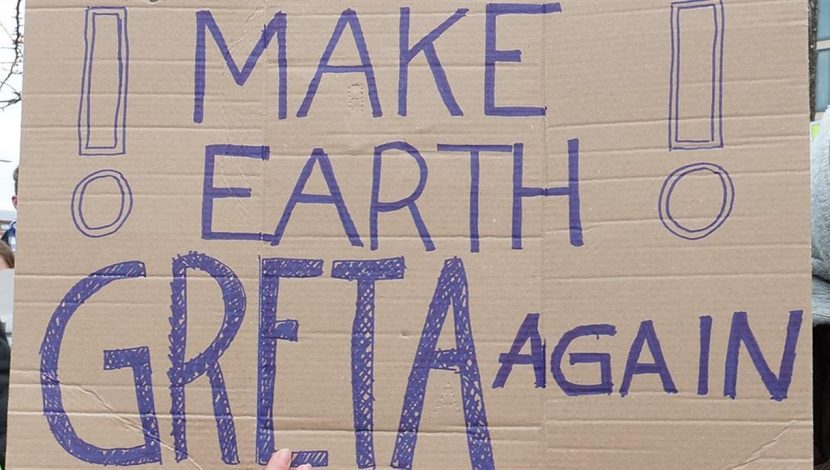 ! MAKE !
EARTH
GRETA AGAIN